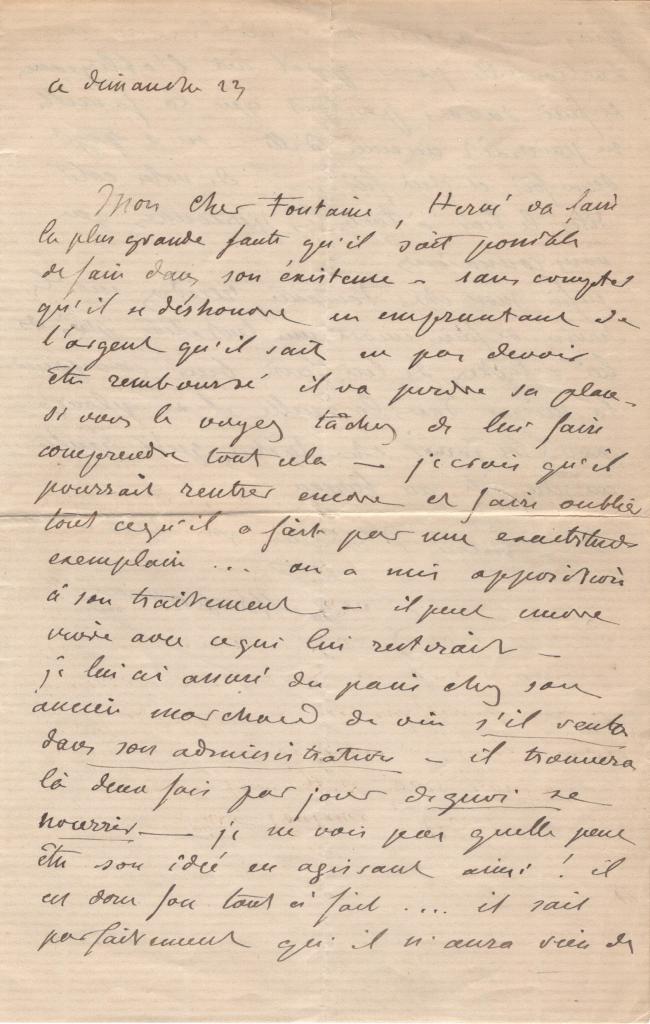 ce dimanche 23
Mon cher Fontaine, Hervé va faire
la plus grande faute qu'il soit possible
de faire dans son existence – sans compter
qu'il se déshonore en empruntant de
l'argent qu'il sait ne pas devoir
être remboursé il va perdre sa place –
si vous le voyez tâchez de lui faire
comprendre tout cela — je crois qu'il
pourrait rentrer encore et faire oublier
tout ce qu'il a fait par une exactitude
exemplaire ... on a mis opposition
à son traitement – il peut encore
vivre avec ce qui lui resterait –
je lui ai assuré du pain chez son
ancien marchand de vin s'il reste
dans son administration – il trouvera
là deux fois par jour de quoi se
nourrir — je ne vois pas quelle peut
être son idée en agissant ainsi ! il
est donc fou tout à fait .... il sait
parfaitement qu'il n'aura rien de